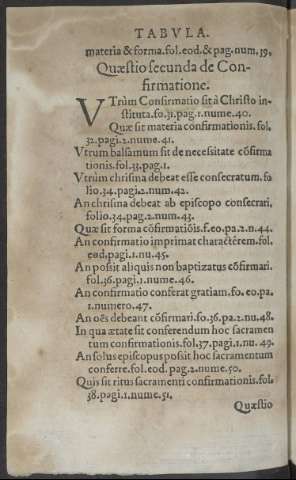 TABVLA.
materia & forma. fol. eod. & pag. num. 39.
Quæstio secunda de Con-
firmatione.
VTrùm Confirmatio sit à Christo in-
stituta. fo. 31. pag. 1. nume. 40.
Quæ sit materia confirmationis. fol.
32. pagi. 2. nume. 41.
Vtrum balsamum sit de necessitate cõfirma
tionis. fol. 33. pag. 1.
Vtrùm chrisma debeat esse consecratum. fo
lio. 34. pagi. 2. num. 42.
An chrisma debeat ab episcopo consecrari.
folio. 34. pag. 2. num. 43.
Quæ sit forma cõfirmatiõis. f. eo. pa. 2. n. 44.
An confirmatio imprimat charactẽrem. fol.
eod. pagi. 1. nu. 45.
An possit aliquis non baptizatus cõfirmari.
fol. 36. pagi. 1. nume. 46.
An confirmatio conferat gratiam. fo. eo. pa.
1. numero. 47.
An oẽs debeant cõfirmari. fo. 36. pa. 2. nu. 48.
In qua ætate sit conferendum hoc sacramen
tum confirmationis. fol. 37. pagi. 1. nu. 49.
An solus episcopus possit hoc sacramentum
conferre. fol. eod. pag. 2. nume. 50.
Quis sit ritus sacramenti confirmationis. fol.
38. pagi. 1. nume. 51.
Quæstio